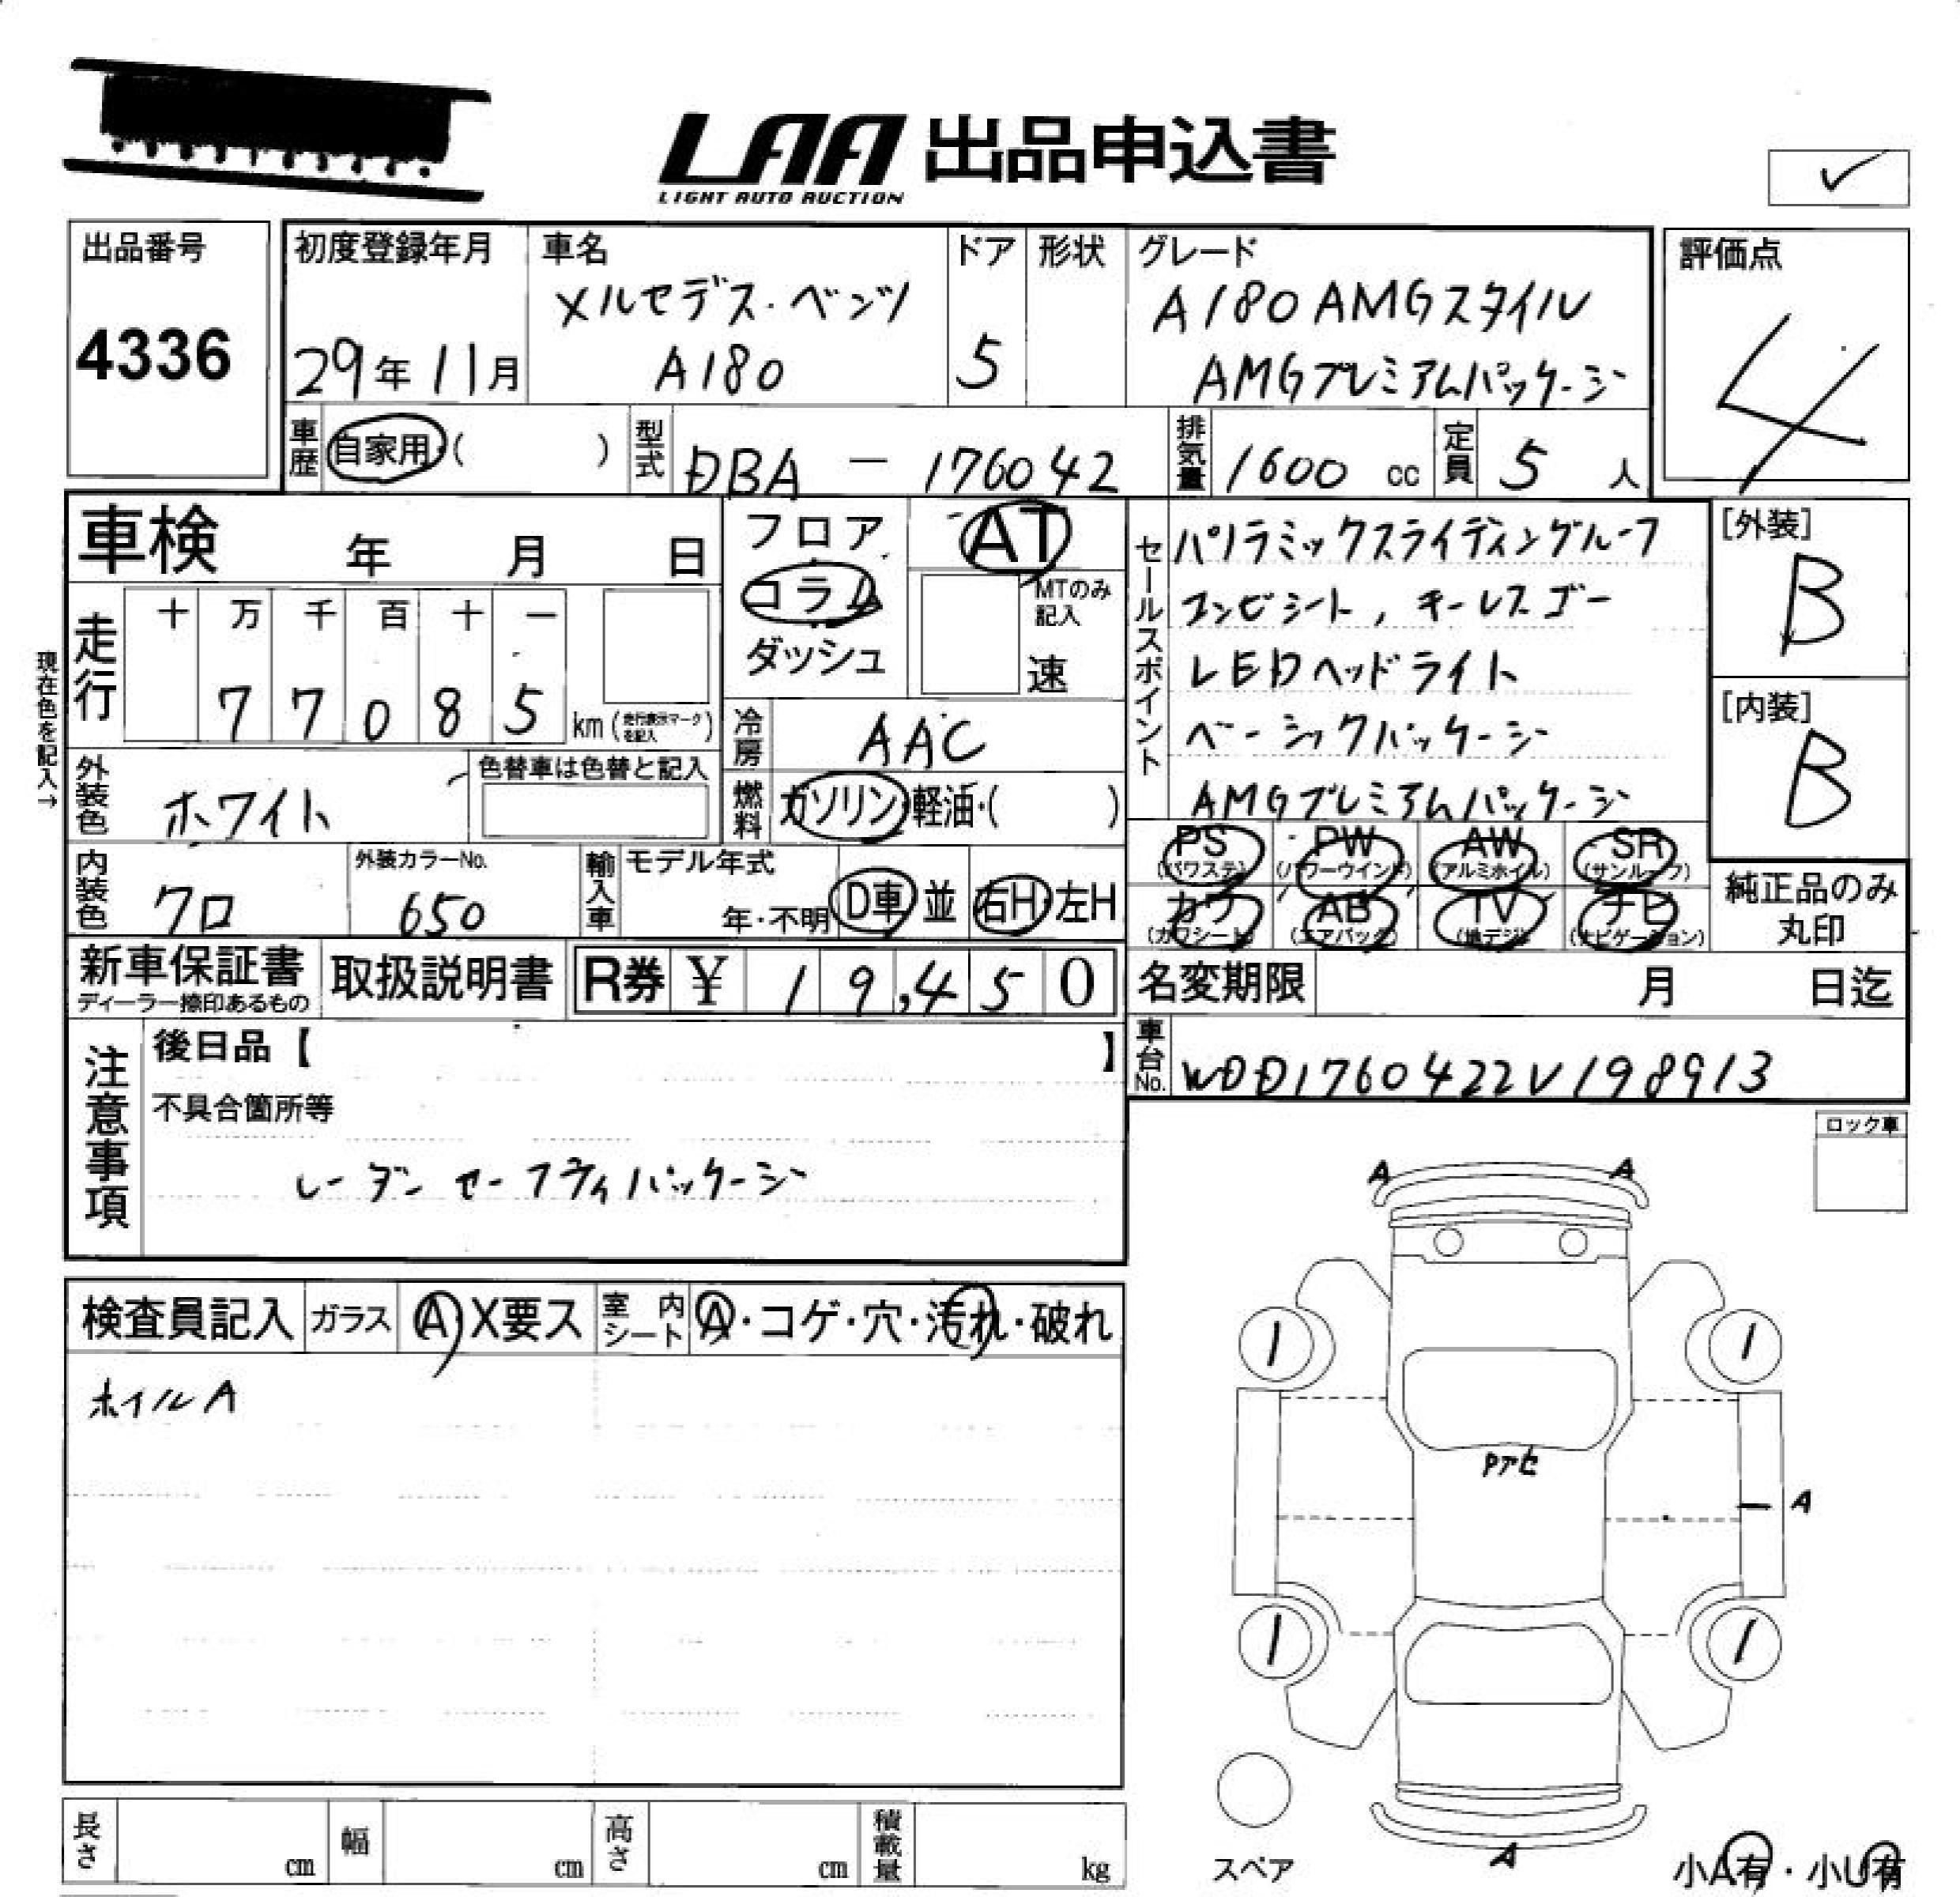 LAA 出品申込書
LIGHT AUTO AUCTION
✓
出品番号
4336
初度登録年月
29年11月
車名
メルセデス・ベンツ
A180
ドア
5
形状
グレード
A180 AMGスタイル
AMGプレミアムパッケージ
評価点
4
車歴 自家用・( )
型式 DBA - 176042
排気量 1600 cc
定員 5 人
車検 年 月 日
フロア
コラム
ダッシュ
AT
MTのみ
記入
速
セールスポイント
パノラミックスライディングルーフ
コンビシート, キーレスゴー
LEDヘッドライト
ベーシックパッケージ
AMGプレミアムパッケージ
[外装]
B
[内装]
B
現在色を記入→
走行
十 万 千 百 十 一
7 7 0 8 5 km (走行表示マークを記入)
冷房 AAC
燃料 ガソリン・軽油・( )
外装色 ホワイト
色替車は色替と記入
内装色 クロ
外装カラーNo.
650
輸入車 モデル年式
年・不明
D車 並 右H・左H
PS (パワステ)
PW (パワーウインド)
AW (アルミホイル)
SR (サンルーフ)
カワ (カワシート)
AB (エアバック)
TV (地デジ)
ナビ (ナビゲーション)
純正品のみ
丸印
新車保証書
ディーラー捺印あるもの
取扱説明書
R券 ¥ 19,450
名変期限 月 日迄
車台No. WDD1760422V198913
注意事項
後日品【 】
不具合箇所等
レーダー セーフティパッケージ
ロック車
検査員記入
ガラス A X要ス
室内シート A・コゲ・穴・汚れ・破れ
ホイルA
A A
1 1
Pアセ
A
1 1
A
スペア
小A有・小U有
長さ cm
幅 cm
高さ cm
積載量 kg